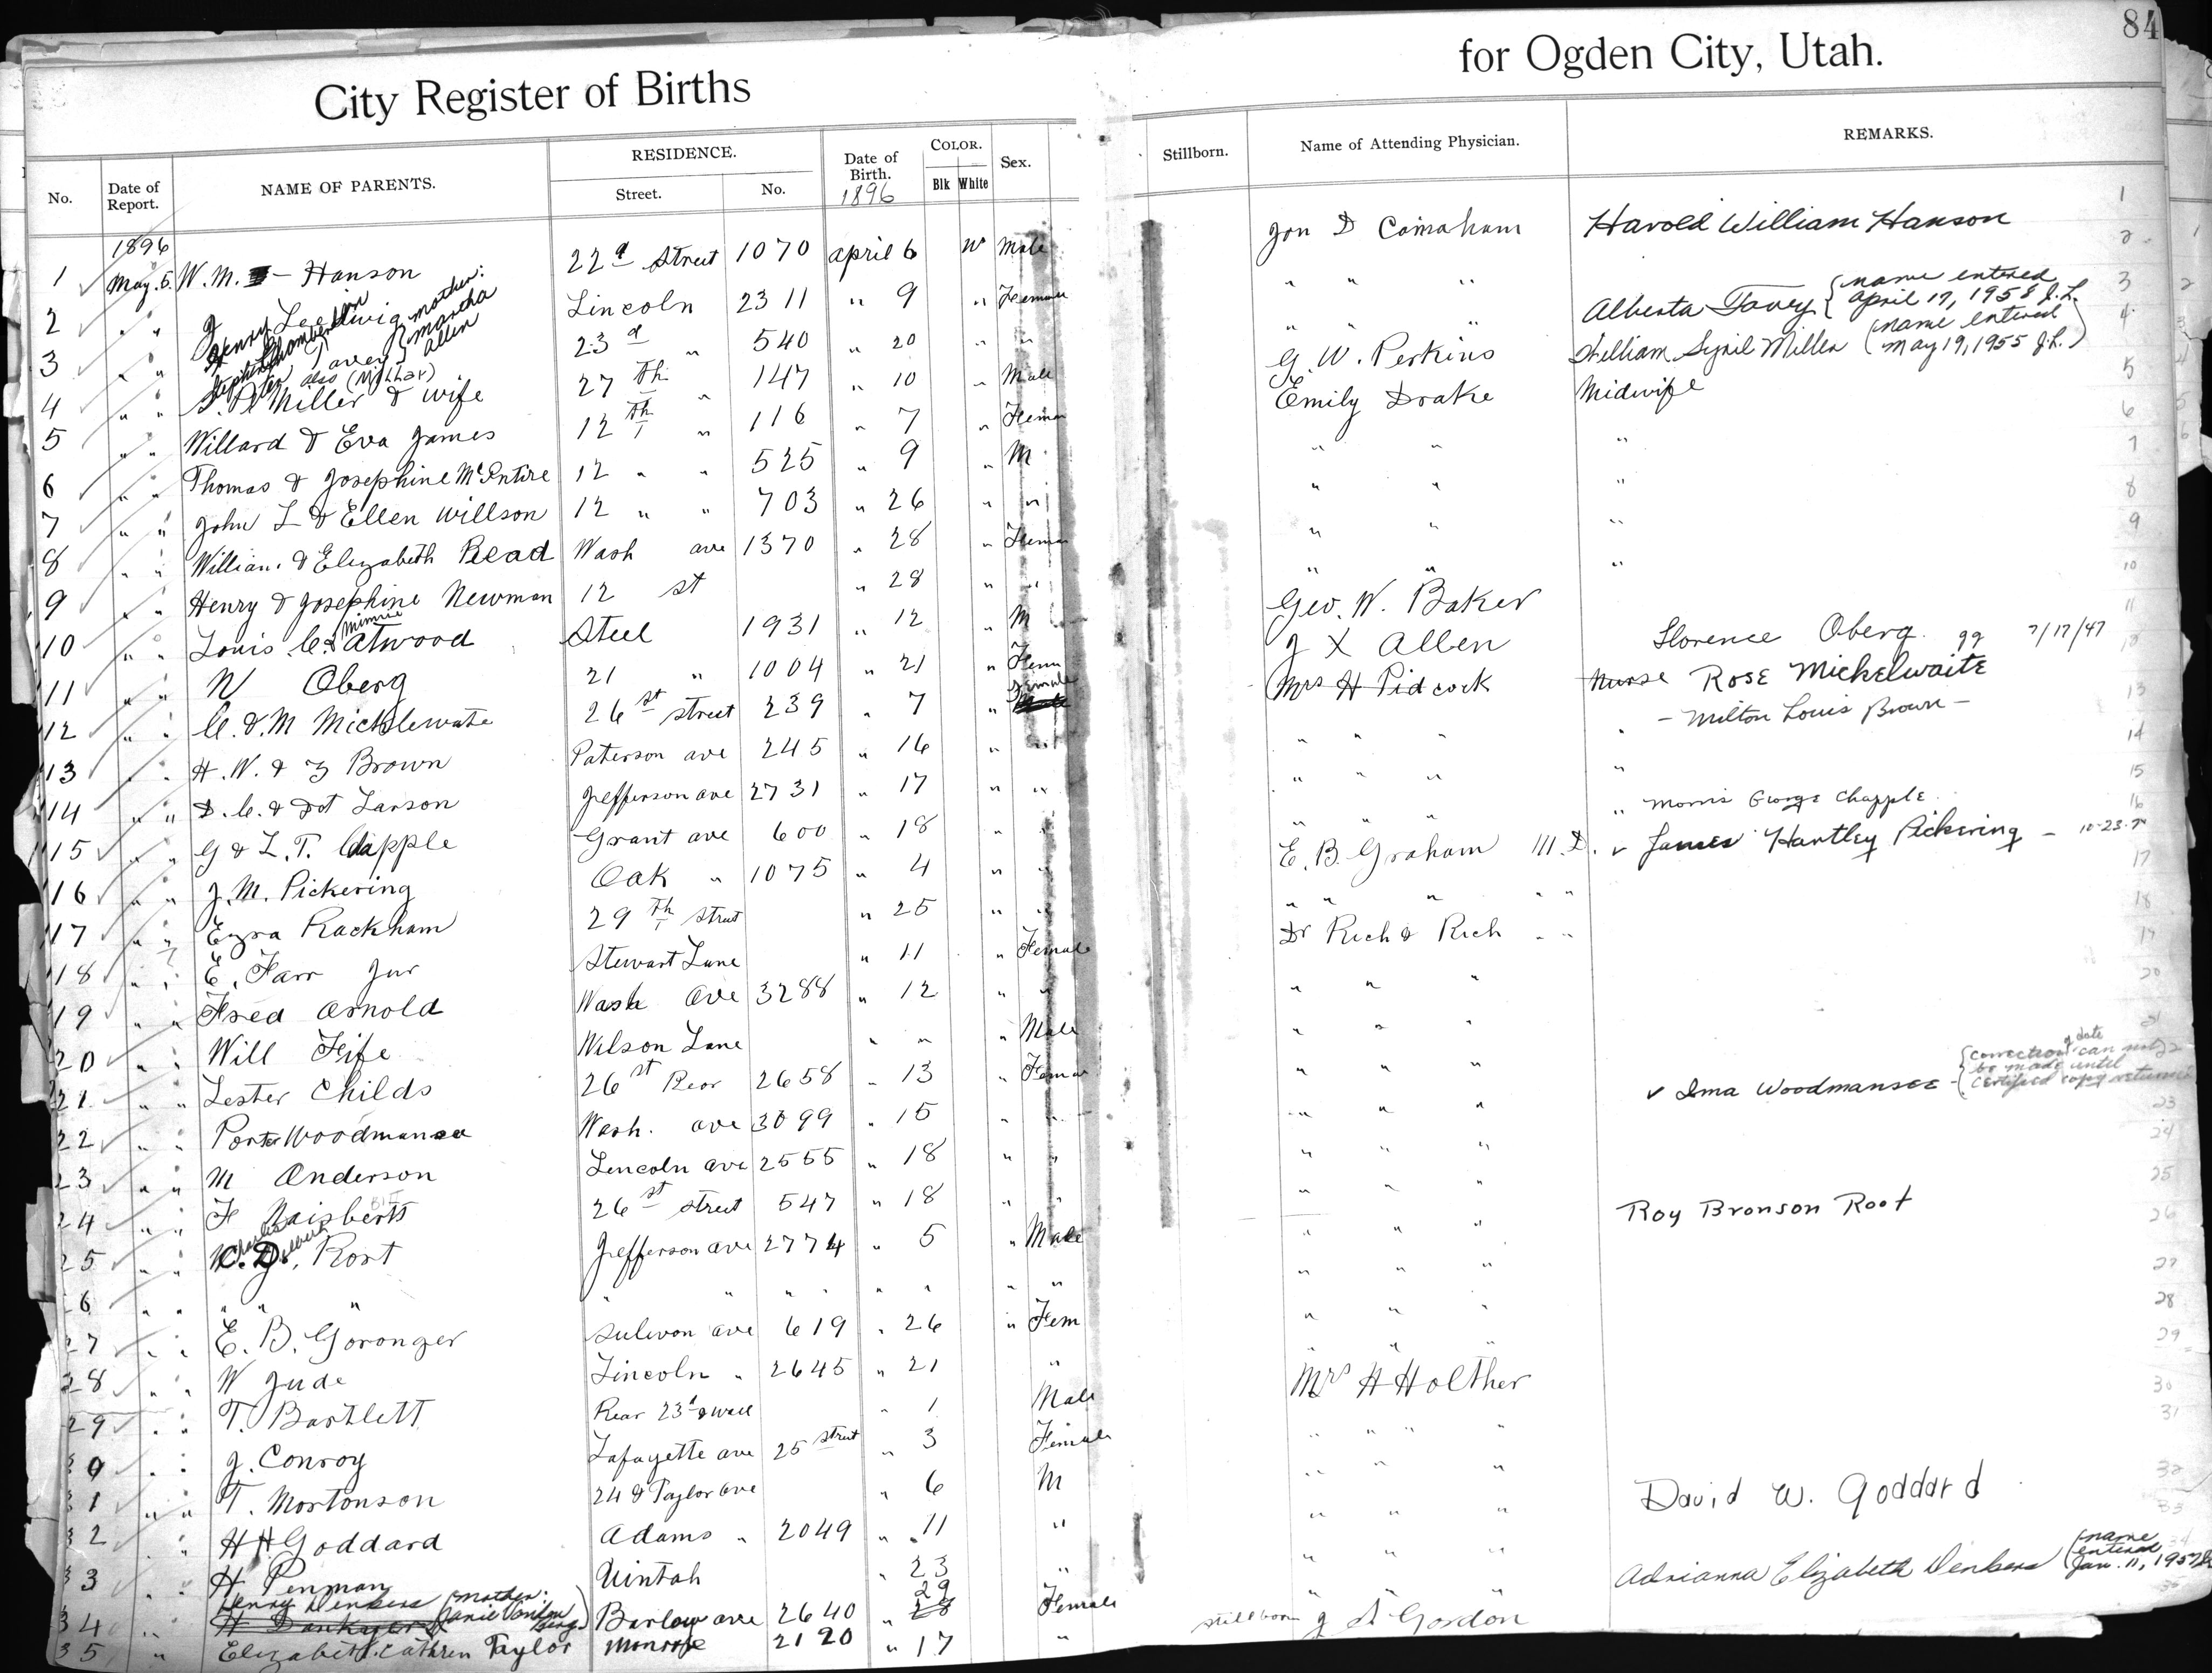 84
City Register of Births
for Ogden City, Utah.
No. Date of Report. NAME OF PARENTS. RESIDENCE. Street. No. Date of Birth. 1896 COLOR. Blk White Sex. Stillborn. Name of Attending Physician. REMARKS.
1896
1 May. 5. W. M. - Hanson 22d Street 1070 april 6 W Male Harold William Hanson
2 " " Ledwig Lincoln 2311 " 9 " Female " " "
3 " " Henry mother: Martha Allen 23d " 540 " 20 " " " " " Alberta Tavey {name entered april 17, 1958 J.L.
also (Millar)
4 " " Miller & wife 27th " 147 " 10 " Male G. W. Perkins William Syril Miller (name entered May 19, 1955 J.L.)
5 " " Willard & Eva James 12th " 116 " 7 " Emily Drake Midwife
6 " " Thomas & Josephine McEntire 12 " " 525 " 9 " M " " "
7 " " John L & Ellen Willson 12 " " 703 " 26 " " " " "
8 " " William & Elizabeth Read Wash ave 1370 " 28 " " " "
9 " " Henry & Josephine Newman 12 st " 28 " " " " "
10 " " Louis C. & Minnie Atwood Steel 1931 " 12 " M Geo. W. Baker
11 " " N Oberg 21 " 1004 " 21 " Fem J X Allen Florence Oberg 7/17/47
12 " " C. & M Micklewate 26st street 239 " 7 " Female Mrs H Pidcock Nurse Rose Mickelwaite
13 " " H. W. & Brown Paterson ave 245 " 16 " " " " " " - Milton Louis Brown -
14 " " D. C. & Dot Larson Jefferson ave 2731 " 17 " " " " " "
15 " " G & L. T. Capple Grant ave 600 " 18 " " " " " " Morris George Chapple
16 " " J. M. Pickering Oak " 1075 " 4 " " E. B. Graham M.D. James Hartley Pickering -
17 " " Ezra Rackham 29th Street " 25 " " " " " " "
18 " " E. Farr Jur Stewart Lane " 11 " Female Dr Rich & Rich " "
19 " " Fred Arnold Wash Ave 3288 " 12 " " " " "
20 " " Will Fife Wilson Lane " " " Male " " "
21 " " Lester Childs 26st Rear 2658 " 13 " " " "
22 " " Porter Woodmansee Wash. ave 3099 " 15 " " " " " Ima Woodmansee {correction of date can not be made until certified copy returned
23 " " M Anderson Lincoln ave 2555 " 18 " " " " "
24 " " F Naisbett 26st street 547 " 18 " " " " "
25 " " C. D. Root Jefferson ave 2774 " 5 " Male " " " Roy Bronson Root
26 " " " " " " " " " " " " " " " "
27 " " E. B. Goronger Sulivon ave 619 " 26 " Fem " " "
28 " " W Jude Lincoln " 2645 " 21 " " " "
29 " " T. Bartlett Rear 23d & Wall " 1 Male Mrs H Holther
30 " " J. Conroy Lafayette ave 25 Street " 3 Female " " "
31 " " T. Mortonson 24 & Taylor ave " 6 M " " "
32 " " H H Goddard Adams " 2049 " 11 " " " " David W. Goddard
33 " " H. Penman Uintah " 23 " " " "
34 " " Henry Denkers (mother: Barlow ave 2640 " 29 28 Female " " Adrianna Elizabeth Denkers (name entered Jan. 11, 1957
35 " Elizabeth Cathren Taylor Monroe 2120 " 17 " stillborn Gordon